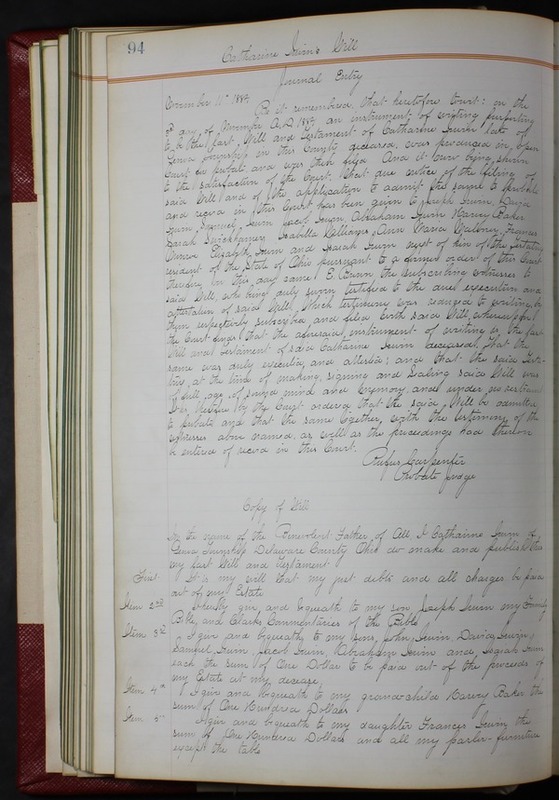 94
Catharine Irwin's Will
Journal Entry
November 11th 1884
Be it remembered, that heretofore towit: on the
day of A.D. 1884 an instrument of writing purporting
to be the last Will and Testament of Catharine Irwin late of
Township in this County deceased, was produced in open
Court for probate and was then filed And it now being shown
to the satisfaction of the Court. that due notice of the filing of
said Will and of the application to admit the same to probate
and record in this Court has been given to Joseph Irwin, David
Irwin, Samuel Irwin Jacob Irwin, Abraham Irwin Harvey Baker
Sarah Isabella Williams, Ann Maria Frances
Elizabeth Irwin and Isaiah Irwin next of kin of the testatrix
resident of the State of Ohio pursuant to a former order of this Court
therefore on this day came E. the subscribing witnesses to
said Will, who being duly sworn testified to the due execution and
attestation of said Will, Which testimony was reduced to writing, by
them respectively subscribed and filed with said Will, whereupon
the Court finds that the aforesaid instrument of writing is the last
Will and Testament of said Catharine Irwin deceased, that the
same was duly executed and attested; and that the said Testa-
trix, at the time of making, signing and sealing said Will was
of full age, of sound mind and memory, and under no restraint
It is therefore by the Court ordered that the said Will be admitted
to probate and that the same together with the testimony of the
witnesses above named, as well as the proceedings had thereon
be entered of record in this Court.
Rufus Carpenter
Probate Judge
Copy of Will
In the name of the Benevolent Father of All, I Catharine Irwin of
Township Delaware County Ohio do make and publish this
my last Will and Testament.
First It is my will that my just debts and all charges be paid
out of my Estate
Item 2nd I hereby give and bequeath to my son Joseph Irwin my Family
Bible, and Clarks Commentaries of the Bible
Item 3rd I give and bequeath to my sons, John Irwin David Irwin,
Samuel Irwin, Jacob Irwin, Abraham Irwin and Isaiah Irwin
each the sum of One Dollar to be paid out of the proceeds of
my Estate at my decease,
Item 4th I give and bequeath to my grandchild Harvey Baker the
sum of One Hundred Dollars
Item 5th I give and bequeath to my daughter Frances Irwin, the
sum of One Hundred Dollars and all my parlor-furniture
except the table